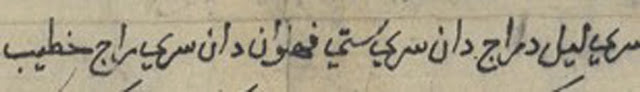 سري ليل دمراج دان سري ستي ڤهلوان دان سري راج خطيب